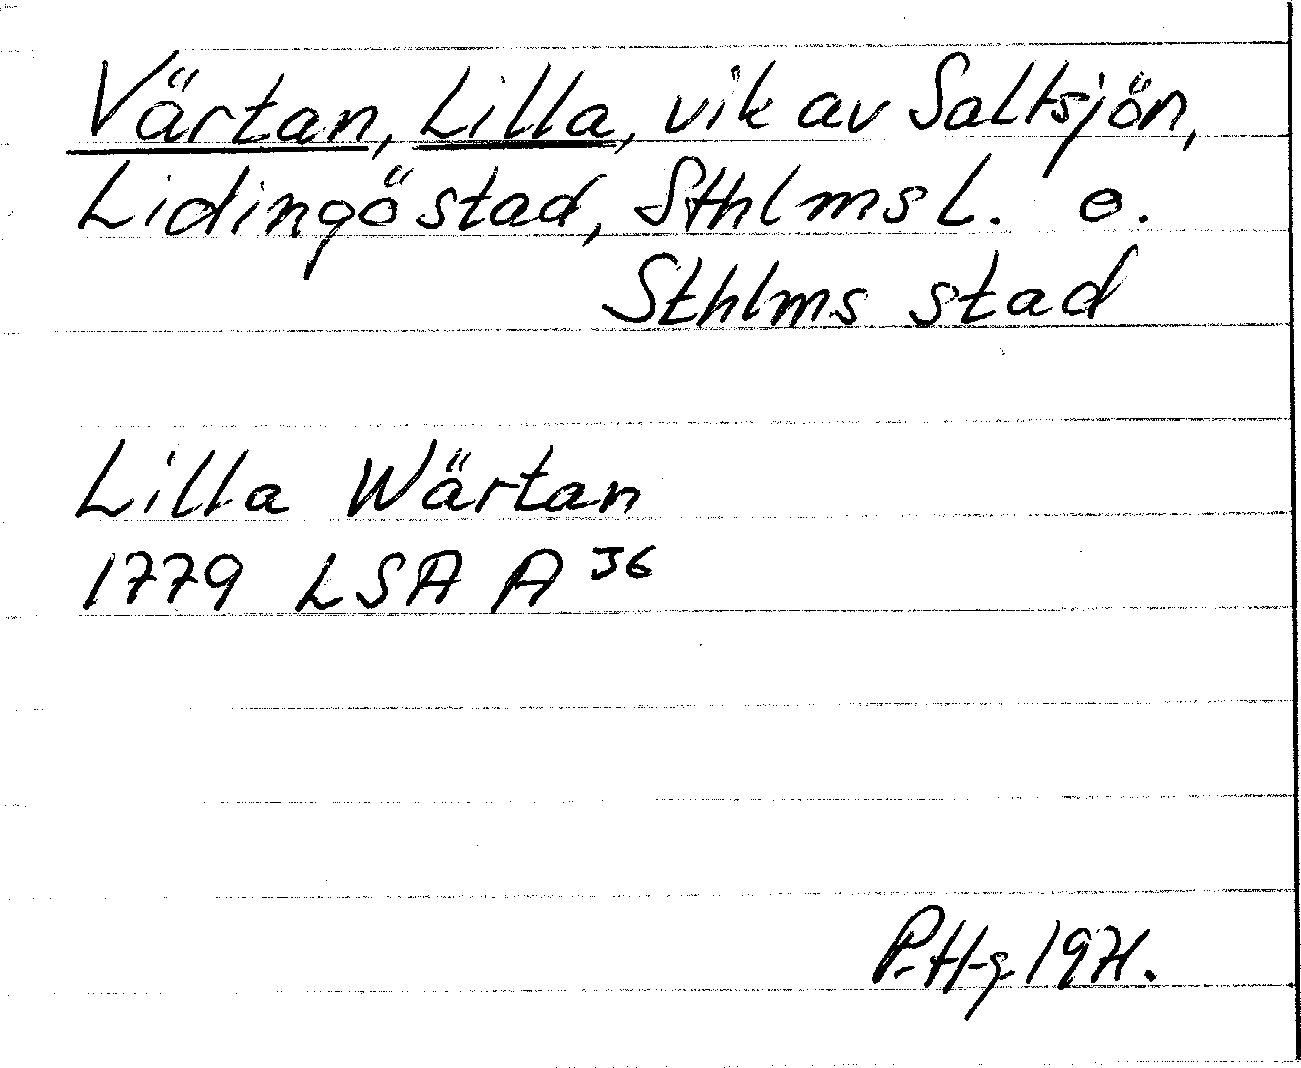 Värtan, Lilla, vik av Saltsjön,
Lidingö stad, Sthlms L. o.
Sthlms stad
Lilla Wärtan
1779 LSA A 36
P. Hg 1971.